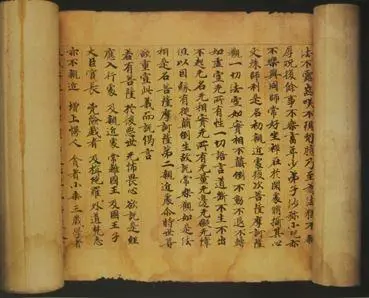 法不露齒咲不現匈臆乃至為法猶不親
厚況復餘事不樂畜年少弟子沙弥小兒亦
不樂與同師常好坐禪在於閑處脩攝其心
文殊師利是名初親近處復次菩薩摩訶薩
觀一切法空如實相不顛倒不動不退不轉
如虛空无所有性一切語言道斷不生不出
不起无名无相實无所有无量无邊无礙无障
但以因緣有從顛倒生故說常樂觀如是法
相是名菩薩摩訶薩第二親近處尒時世尊
欲重宣此義而說偈言
若有菩薩 於後惡世 无怖畏心 欲說是經
應入行處 及親近處 常離國王 及國王子
大臣官長 兇險戲者 及旃陁羅 外道梵志
亦不親近 增上慢人 貪著小乘 三藏學者